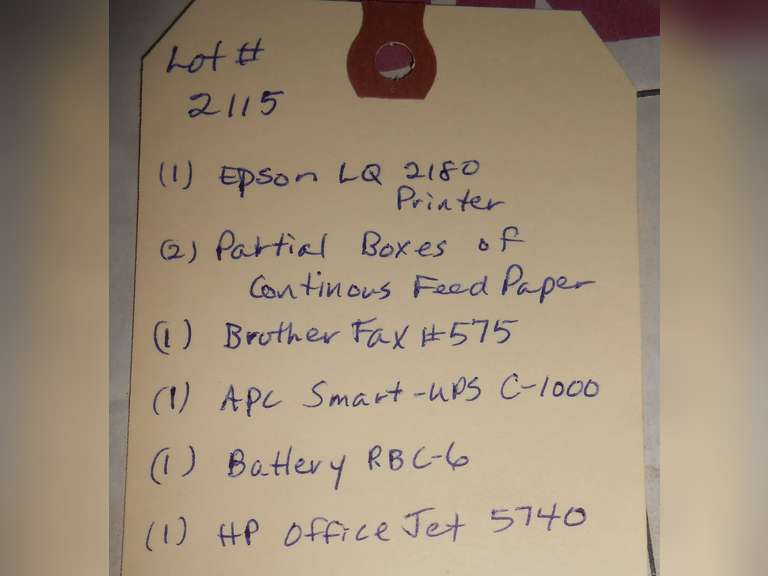 Lot #
2115
(1) Epson LQ 2180
Printer
(2) Partial Boxes of
Continous Feed Paper
(1) Brother Fax #575
(1) APC Smart-UPS C-1000
(1) Battery RBC-6
(1) HP Office Jet 5740